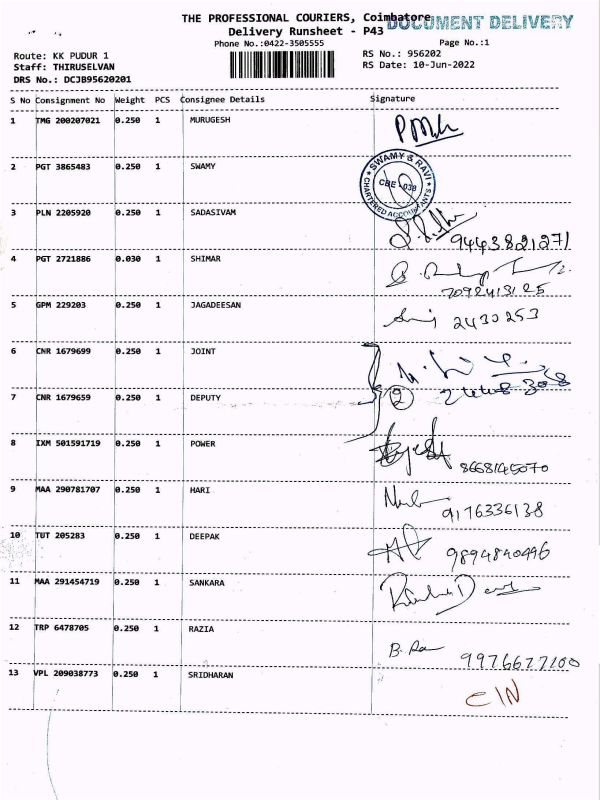 THE PROFESSIONAL COURIERS, Coimbatore
DOCUMENT DELIVERY
Delivery Runsheet - P43
Phone No.:0422-3505555
Page No.:1
Route: KK PUDUR 1
RS No.: 956202
Staff: THIRUSELVAN
RS Date: 10-Jun-2022
DRS No.: DCJB95620201
S No Consignment No Weight PCS Consignee Details Signature
1 TMG 200207021 0.250 1 MURUGESH
2 PGT 3865483 0.250 1 SWAMY
SWAMY & RAVI
CBE - 038
CHARTERED ACCOUNTANTS
3 PLN 2205920 0.250 1 SADASIVAM
9443821271
4 PGT 2721886 0.030 1 SHIMAR
7092413125
5 GPM 229203 0.250 1 JAGADEESAN
2430253
6 CNR 1679699 0.250 1 JOINT
7 CNR 1679659 0.250 1 DEPUTY
2
8 IXM 501591719 0.250 1 POWER
8668145070
9 MAA 290781707 0.250 1 HARI
9176336138
10 TUT 205283 0.250 1 DEEPAK
9894840496
11 MAA 291454719 0.250 1 SANKARA
12 TRP 6478705 0.250 1 RAZIA
9976677100
13 VPL 209038773 0.250 1 SRIDHARAN